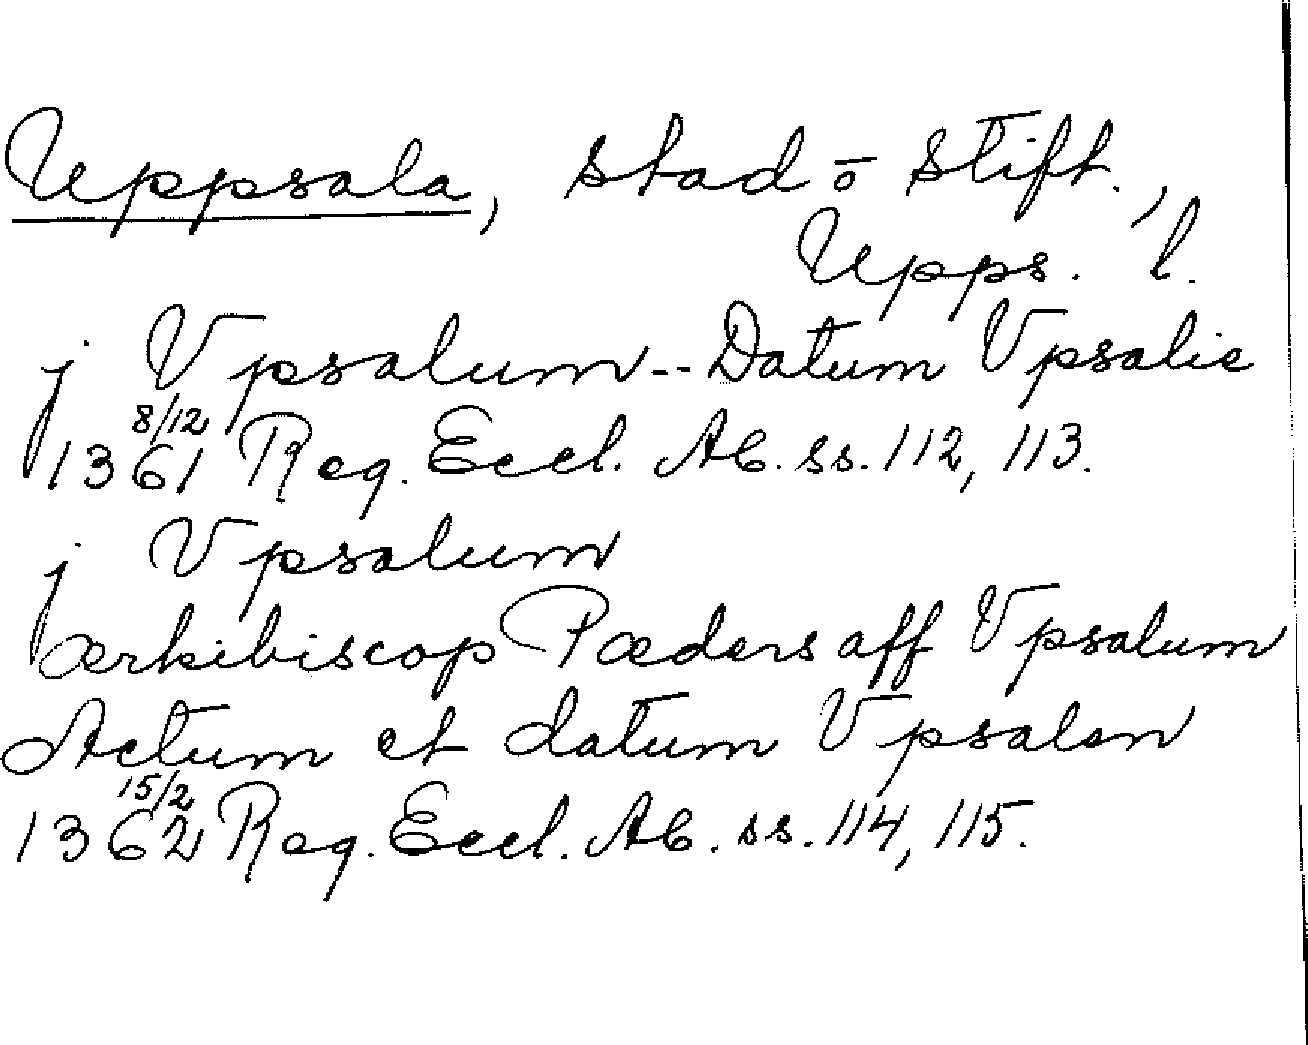 Uppsala, stad o stift.,
Upps. l.
j Vpsalum -- Datum Vpsalie
8/12
1361 Reg. Eccl. Ab. ss. 112, 113.
j Vpsalum
ærkibiscop Pæders aff Vpsalum
Actum et datum Vpsalen
15/2
1362 Reg. Eccl. Ab. ss. 114, 115.